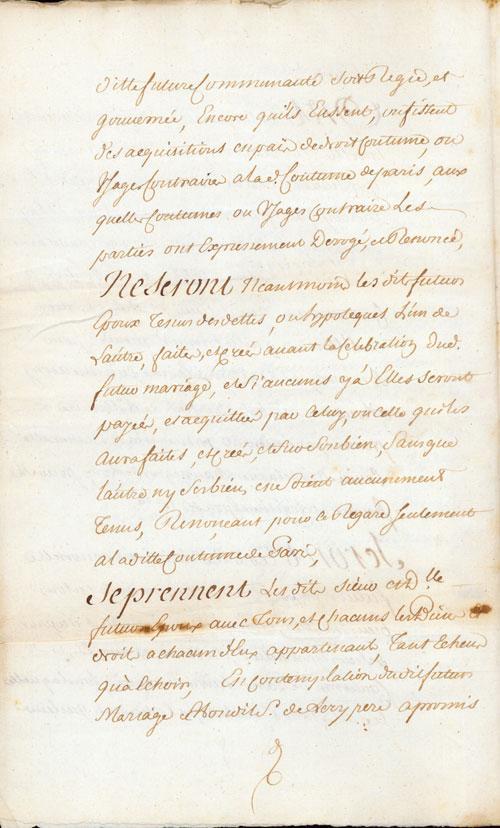 ditte future Communauté soit Regie, et
gouvernée, Encore quils Eussent, ou fissent
des acquisitions en païs de droit Coutume, ou
Usages Contraire a la d. Coutume de paris, aux
quelles Coutumes ou Usages Contraire Les
parties ont Expressement Derogé, et Renoncé,
Ne Seront Neantmoins les dits futurs
Epoux Tenus des dettes, ou hypoteques L'un de
L'autre, faites, et Créé avant la Celebration dud.
futur mariage, et Si aucunes y a Elles Seront
payée, et acquittée par Celuy, ou Celle qui les
aura faites, et Créé et Sur Son bien, Sans que
l'autre ny Ses biens en Soient aucunment
Tenus, Renonçant pour ce Regard Seulement
a la ditte Coutume de Paris,
Se prennent Les dits sieur et d.lle
futurs Epoux avec Tous, et chacuns les Biens et
droits a chacun d'Eux appartenant, Tant Echeus
qu'a Echoir, En Contemplation du dit futur
Mariage et led. S. de Lery pere a promis